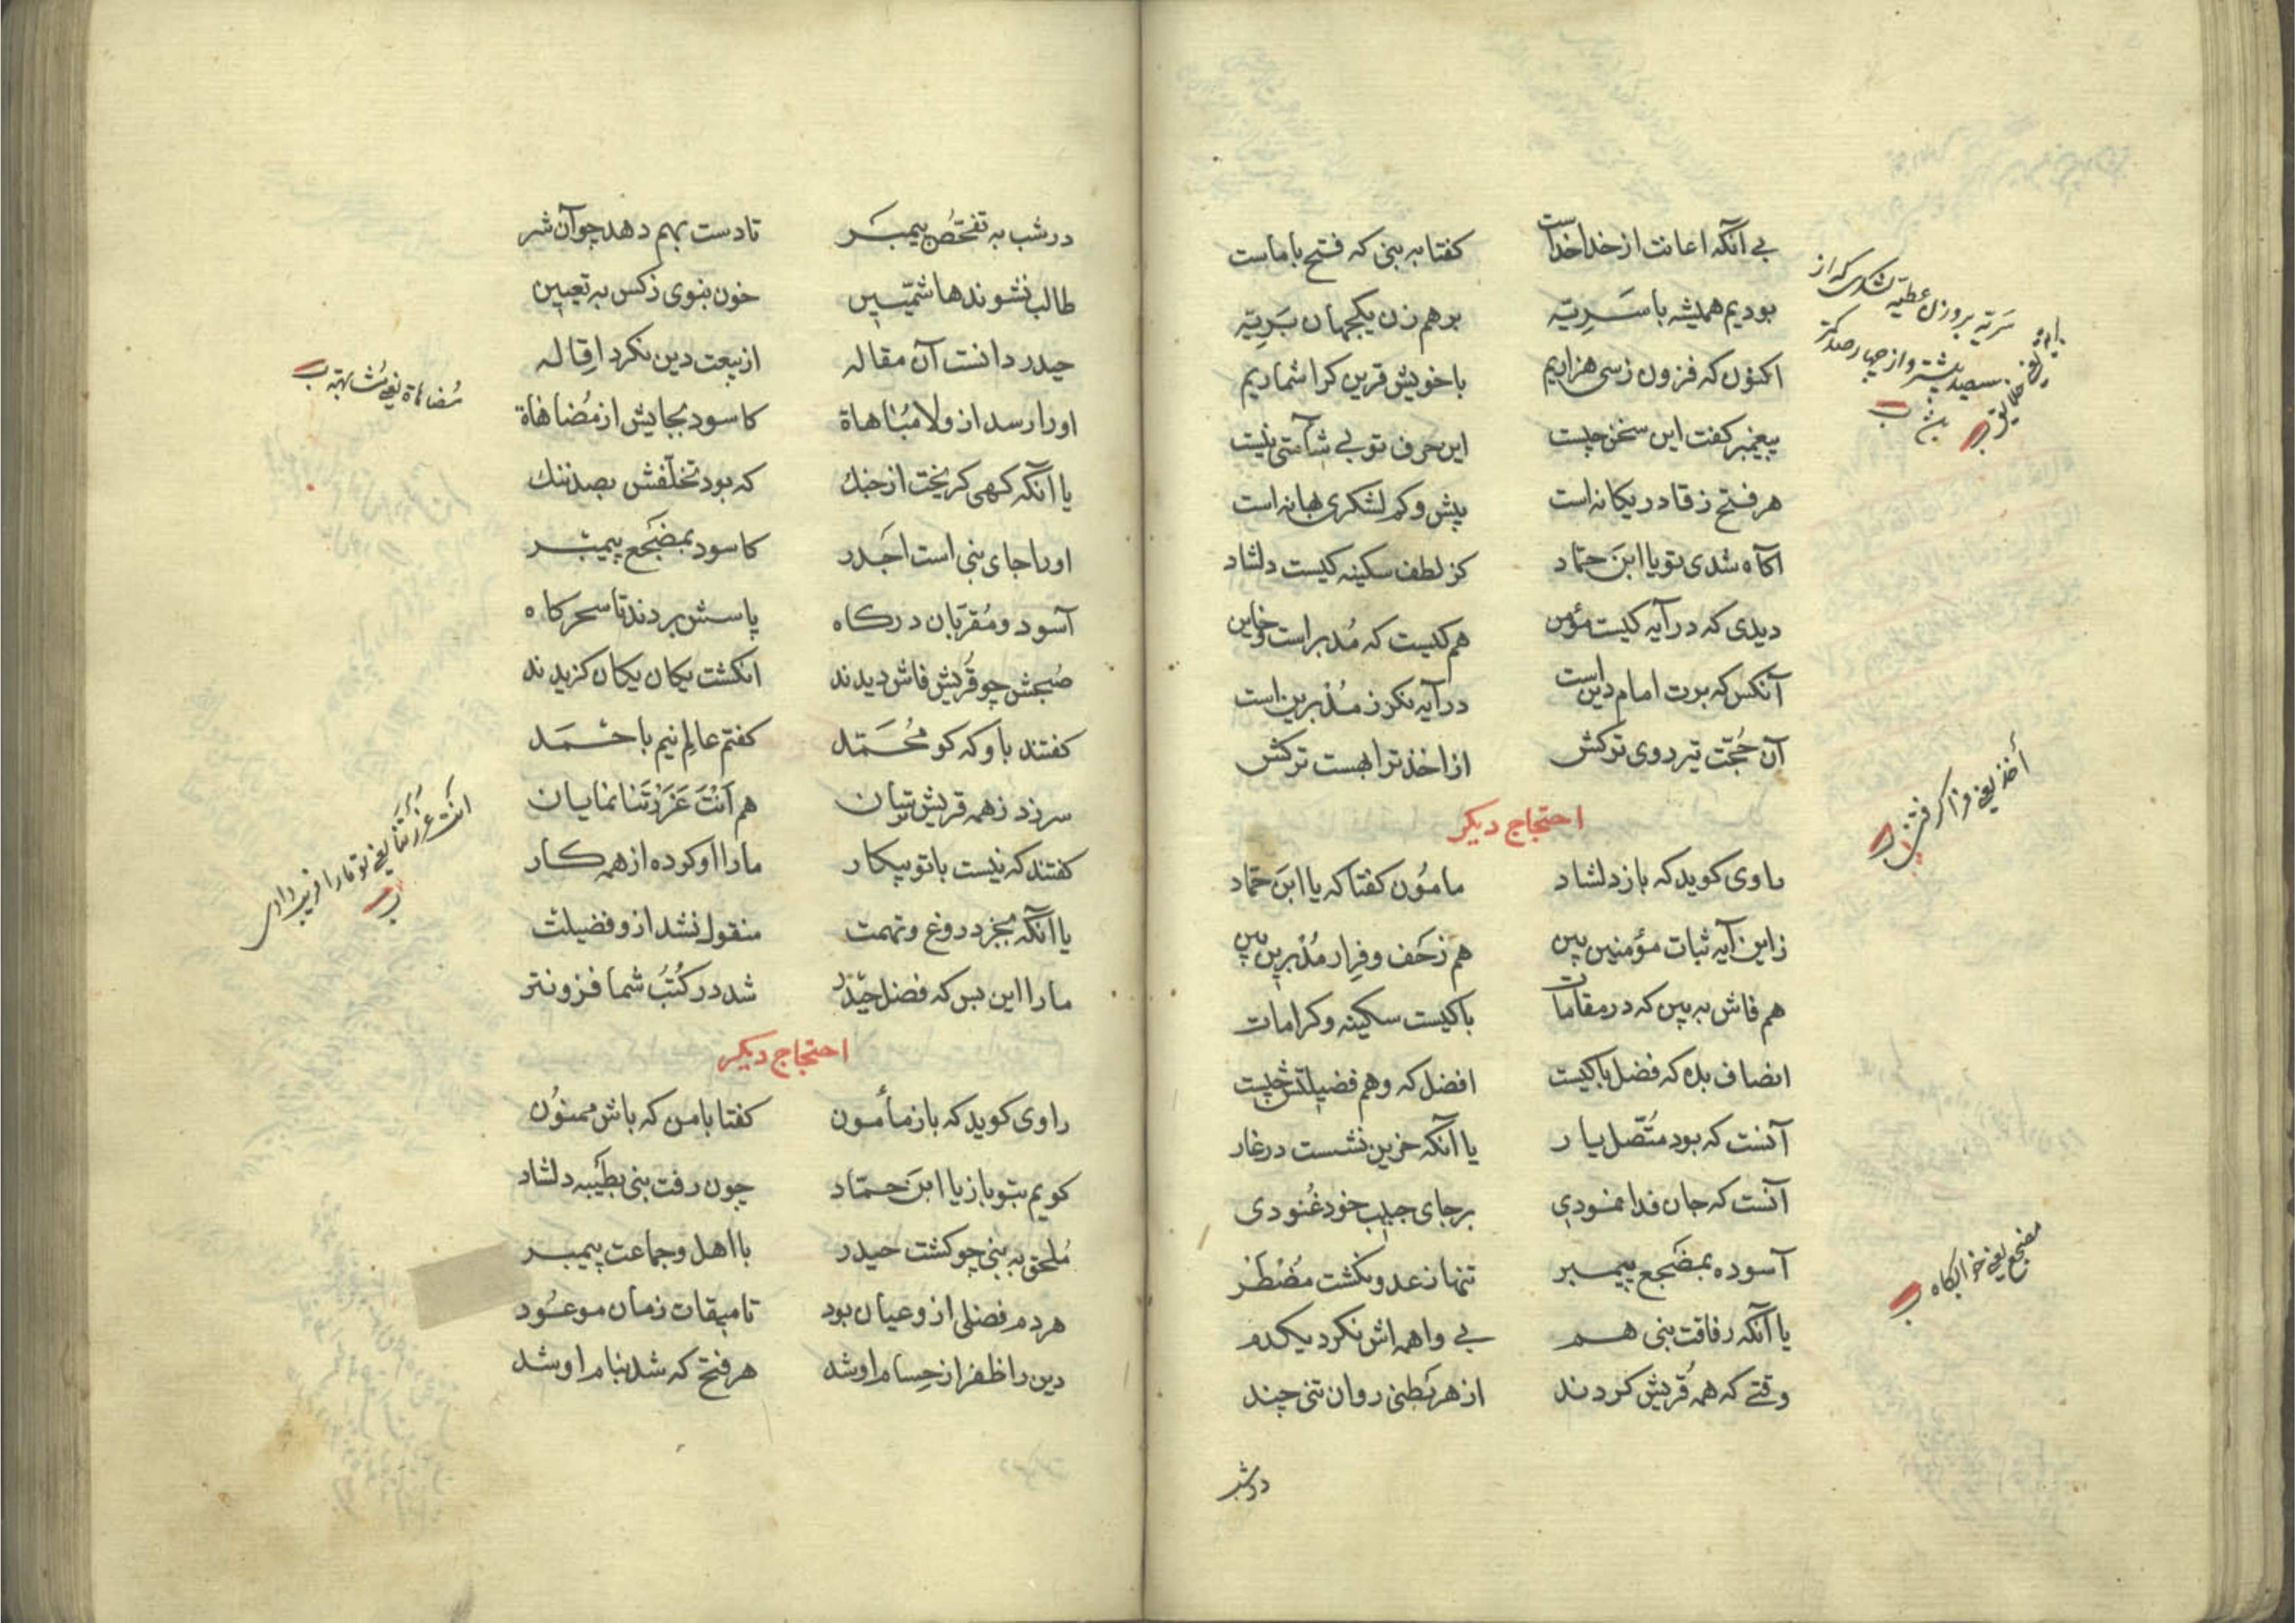 بی آنکه اعانت از خدا خداست کفتا به بنی که فتح با ماست
بودیم همیشه با سَرِیّه برهم زن یکجهان بَرِیّه
اکنون که فزون زسی هزاریم با خویش قرین کرا شماریم
پیغمبر کفت این سخن چیست این حرف تو بی شآمتی نیست
هر فتح ز قادر یکانه است بیش و کم لشکری بهانه است
آکاه شدی تو یا ابنَ حمّاد کز لطف سکینه کیست دلشاد
دیدی که در آیه کیست مؤمن هم کیست که مُدبر است و خاین
آنکس که بوت امام دین است در آیه نکر ز مُدْبرین است
آن حُجّت تیر دوی ترکش از اخذ ترا بهست ترکش
احتجاج دیکر
راوی کوید که باز دلشاد مامُون کفتا که یا ابنَ حمّاد
زاین آیه ثبات مؤمنین بین هم زَحَف و فِرار مُدْبرین بین
هم فاش به بین که در مقامات با کیست سکینه و کرامات
انصاف بده که فضل با کیست افضل که و هم فضیلتش چیست
آنست که بود متّصل یار یا آنکه حزین نشست در غار
آنست که جان فدا نمودی بر جای حبیب خود غُنودی
آسوده بمضجع پیمبر تنها ز عدو نکشت مُضْطَر
یا آنکه رفاقت بنی هم بی واهمه اش نکرد یکدم
وقتی که همه قُریش کردند از هر بَطنی روان تنی چند
در شب
سَریّه بروزن عطیّه لشکری که از
سیصد بیشتر و از چهار صد کمتر
اخذ یعنی فرا کرفتن
مضجع یعنی خوابکاه
در شب به تفحّص پیمبَر تا دست بهم دهد چو آن شر
طالب نشوند هاشمیّین خون بنوی ز کس به تعیین
حیدر دانست آن مقاله از بیعت دین نکرد اِقاله
او را رسد از ولا مُباهاة کاسود بجایش از مُضاهاة
یا آنکه کهی کریخت از جنك که بود تخلّفش بصد ننك
او را جای بنی است اَجدر کاسود بمضجَع پیمبر
آسود و مُقرّبان درکاه پاسش بردند تا سحرکاه
صُبحش چو قُریش فاش دیدند انکشت یکان یکان کزیدند
کفتند باو که کو مُحَمّد کفتم عالِم نیم باحْمَد
سر زد ز همه قریش تبیان هم اَنْتَ غَرَرْتَنا نمایان
کفتند که نیست با تو پیکار ما را او کرده از همه کار
یا آنکه بجز دروغ و تهمت منقول نشد از و فضیلت
ما را این بس که فضل حیْدر شد در کُتُب شما فزونتر
احتجاج دیکر
راوی کوید که باز مأمون کفتا با من که باش ممنوُن
کویم بتو باز یا ابنَ حمّاد چون رفت بنی بطَیبه دلشاد
مُلحق به بنی چو کشت حیدر با اهل و جماعت پیمبر
هر دم فضلی از و عیان بود تا میقات زمان موعُود
دین را ظفر از حِسام او شد هر فتح که شد بنام او شد
مُضاهاة یعنی مُشابهة
انتَ غَرَرْتَنا یعنی تو ما را فریب دادی